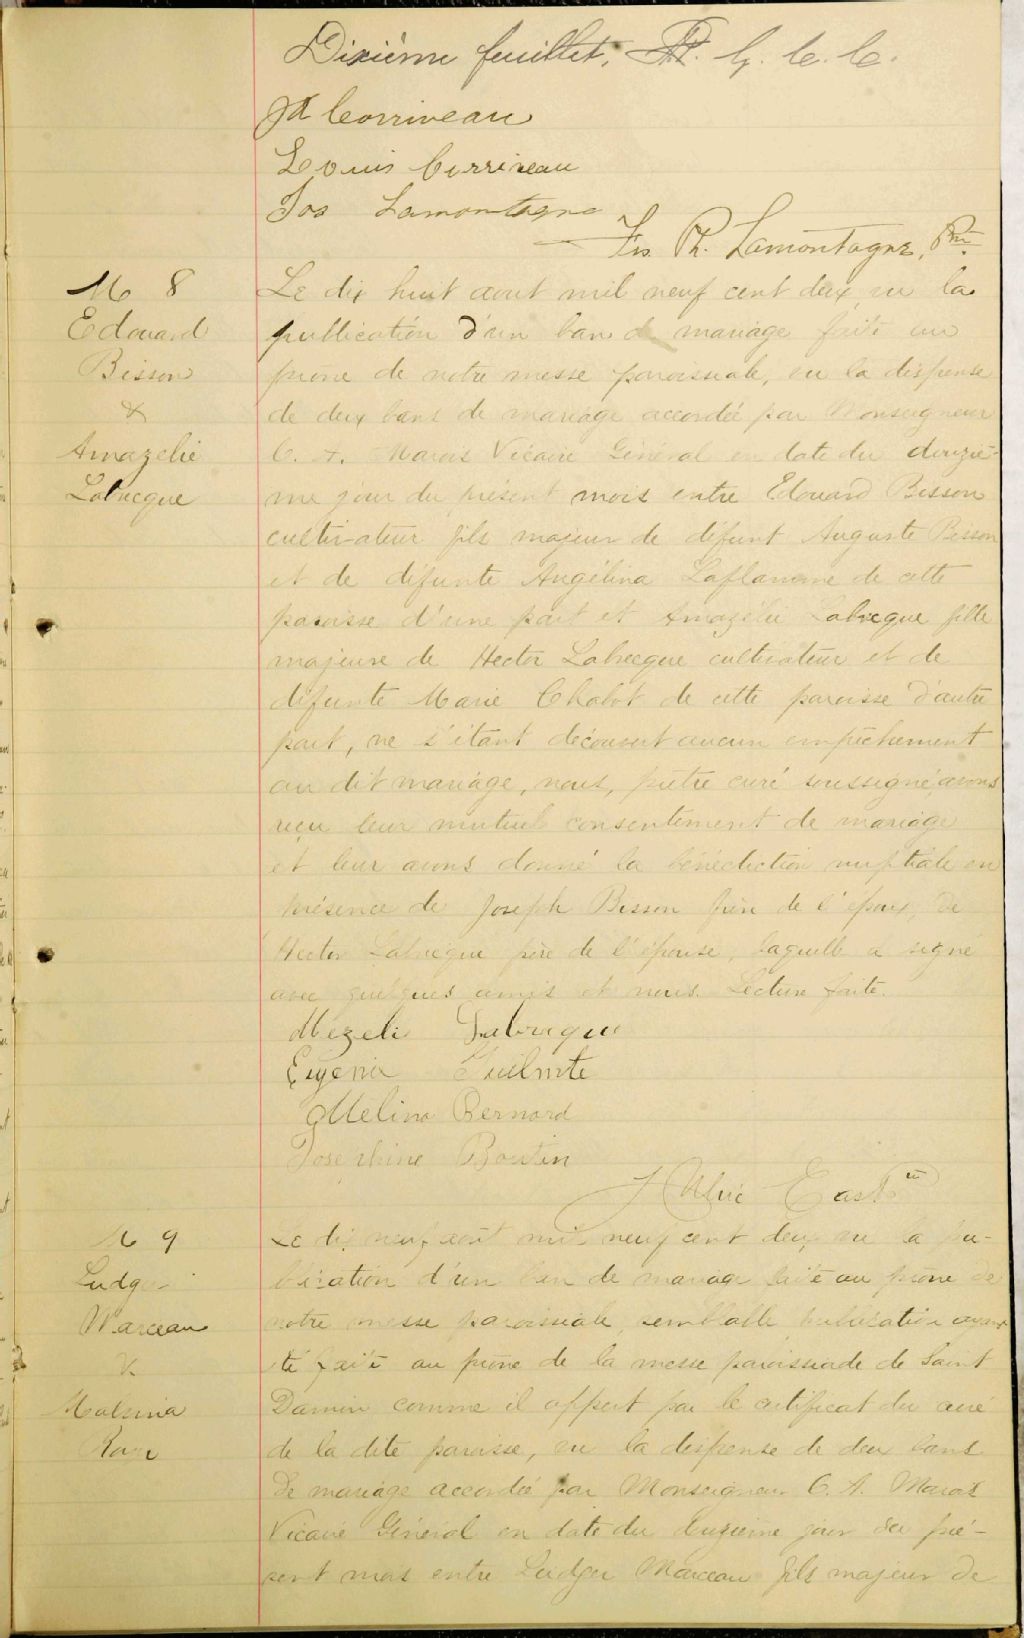 Dixième feuillet, G. C. C.
Jos Corriveau
Louis Corriveau
Jos Lamontagne
Frs. Ph. Lamontagne, Ptre.
M 8
Edouard
Bisson
&
Amazelie
Labrecque
Le dix huit aout mil neuf cent deux, vu la
publication d'un ban de mariage faite au
prône de notre messe paroissiale, vu la dispense
de deux bans de mariage accordée par Monseigneur
C. A. Marois Vicaire Général en date du douziè-
me jour du présent mois entre Edouard Bisson
cultivateur fils majeur de défunt Auguste Bisson
et de défunte Angélina Laflamme de cette
paroisse d'une part et Amazélie Labrecque fille
majeure de Hector Labrecque cultivateur et de
défunte Marie Chabot de cette paroisse d'autre
part, ne s'étant découvert aucun empêchement
au dit mariage, nous, prêtre curé soussigné, avons
reçu leur mutuel consentement de mariage
et leur avons donné la bénédiction nuptiale en
présence de Joseph Bisson frère de l'époux, de
Hector Labrecque père de l'épouse, laquelle a signé
avec quelques amis et nous. Lecture faite.
Mezeli Labreque
Eugenie Guilmte
Melina Bernard
Josephine Boutin
M 9
Ludger
Marceau
&
Malvina
Roger
Le dix neuf août mil neuf cent deux vu la pu-
blication d'un ban de mariage faite au prône de
notre messe paroissiale, semblable publication ayant
été faite au prône de la messe paroissiale de Saint
Damien comme il appert par le certificat du curé
de la dite paroisse, vu la dispense de deux bans
de mariage accordée par Monseigneur C. A. Marois
Vicaire Général en date du douzième jour du pré-
sent mois entre Ludger Marceau fils majeur de